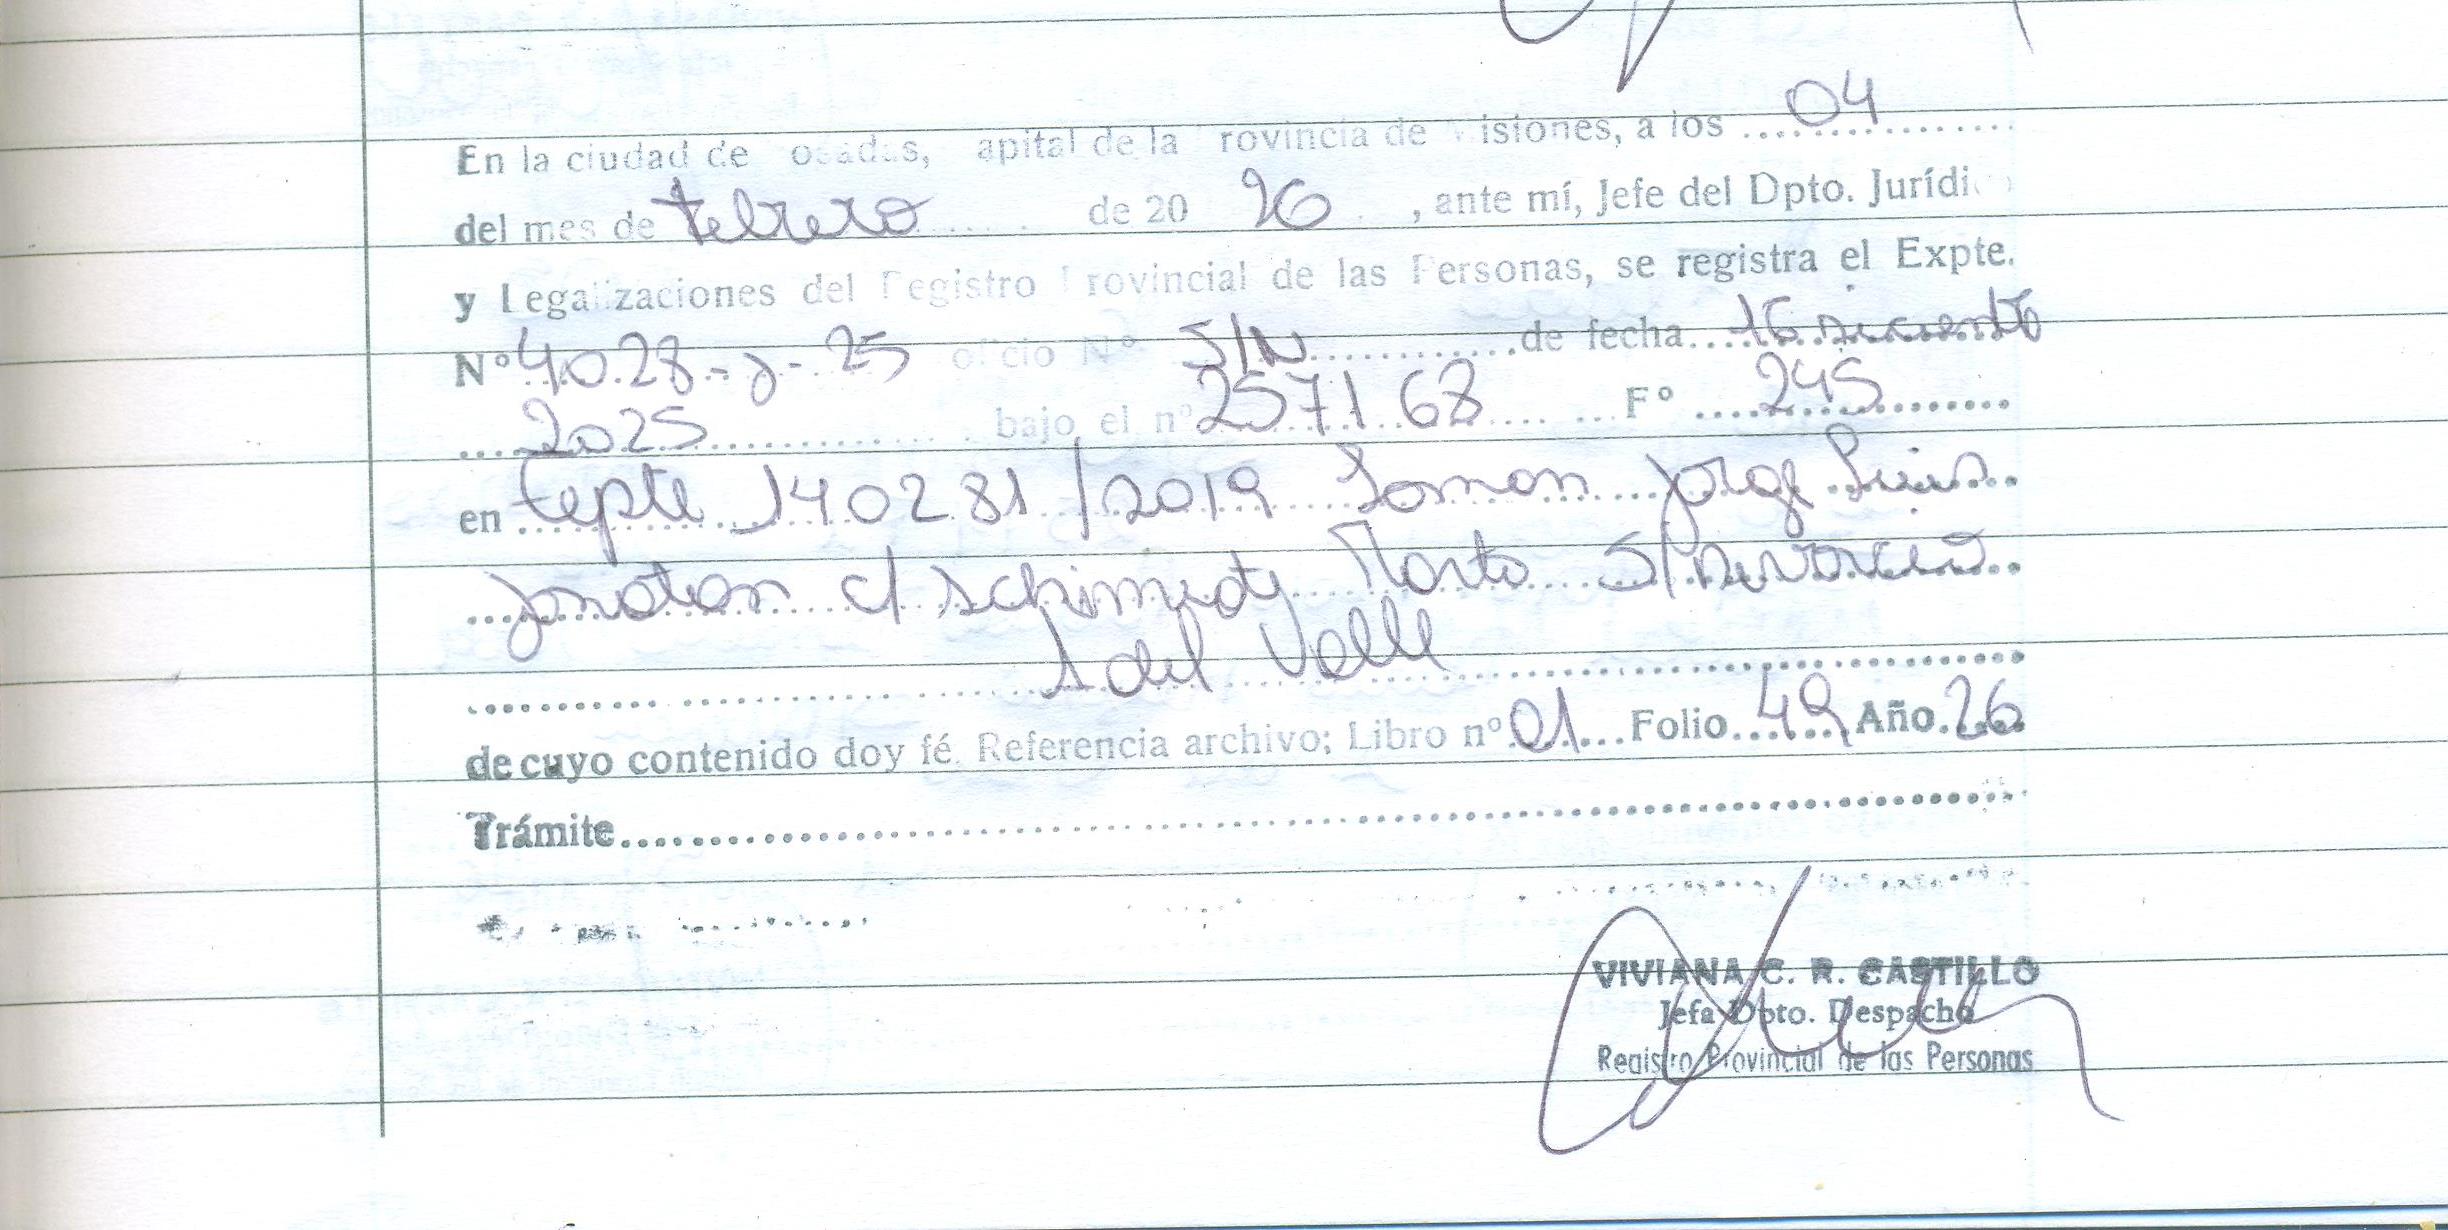 En la ciudad de osadas, apital de la rovincia de isiones, a los 04
del mes de febrero de 20 26, ante mí, Jefe del Dpto. Jurídi
y Legalizaciones del Registro rovincial de las Personas, se registra el Expte.
Nº 4028-J-25 oficio Nº S/N de fecha 16 diciembre
2025 bajo el nº 257168 Fº 245
en Expte 140281/2019 Jorge Luis
Jonatan c/ Schimedt Marta S/Divorcio
del Valle
de cuyo contenido doy fé. Referencia archivo: Libro nº 01 Folio 49 Año 26
Trámite
VIVIANA C. R. CASTILLO
Jefa Dpto. Despacho
Registro Provincial de las Personas